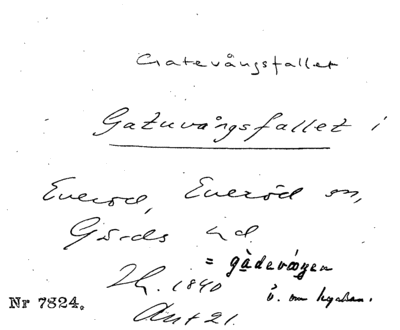 Gatevångsfallet
Gatuvångsfallet i
Everöd, Everöd sn,
Gärds hd
= gàdevóngen
Lh. 1840
ö. om kyrkan.
Nr 7824.
Akt 21.